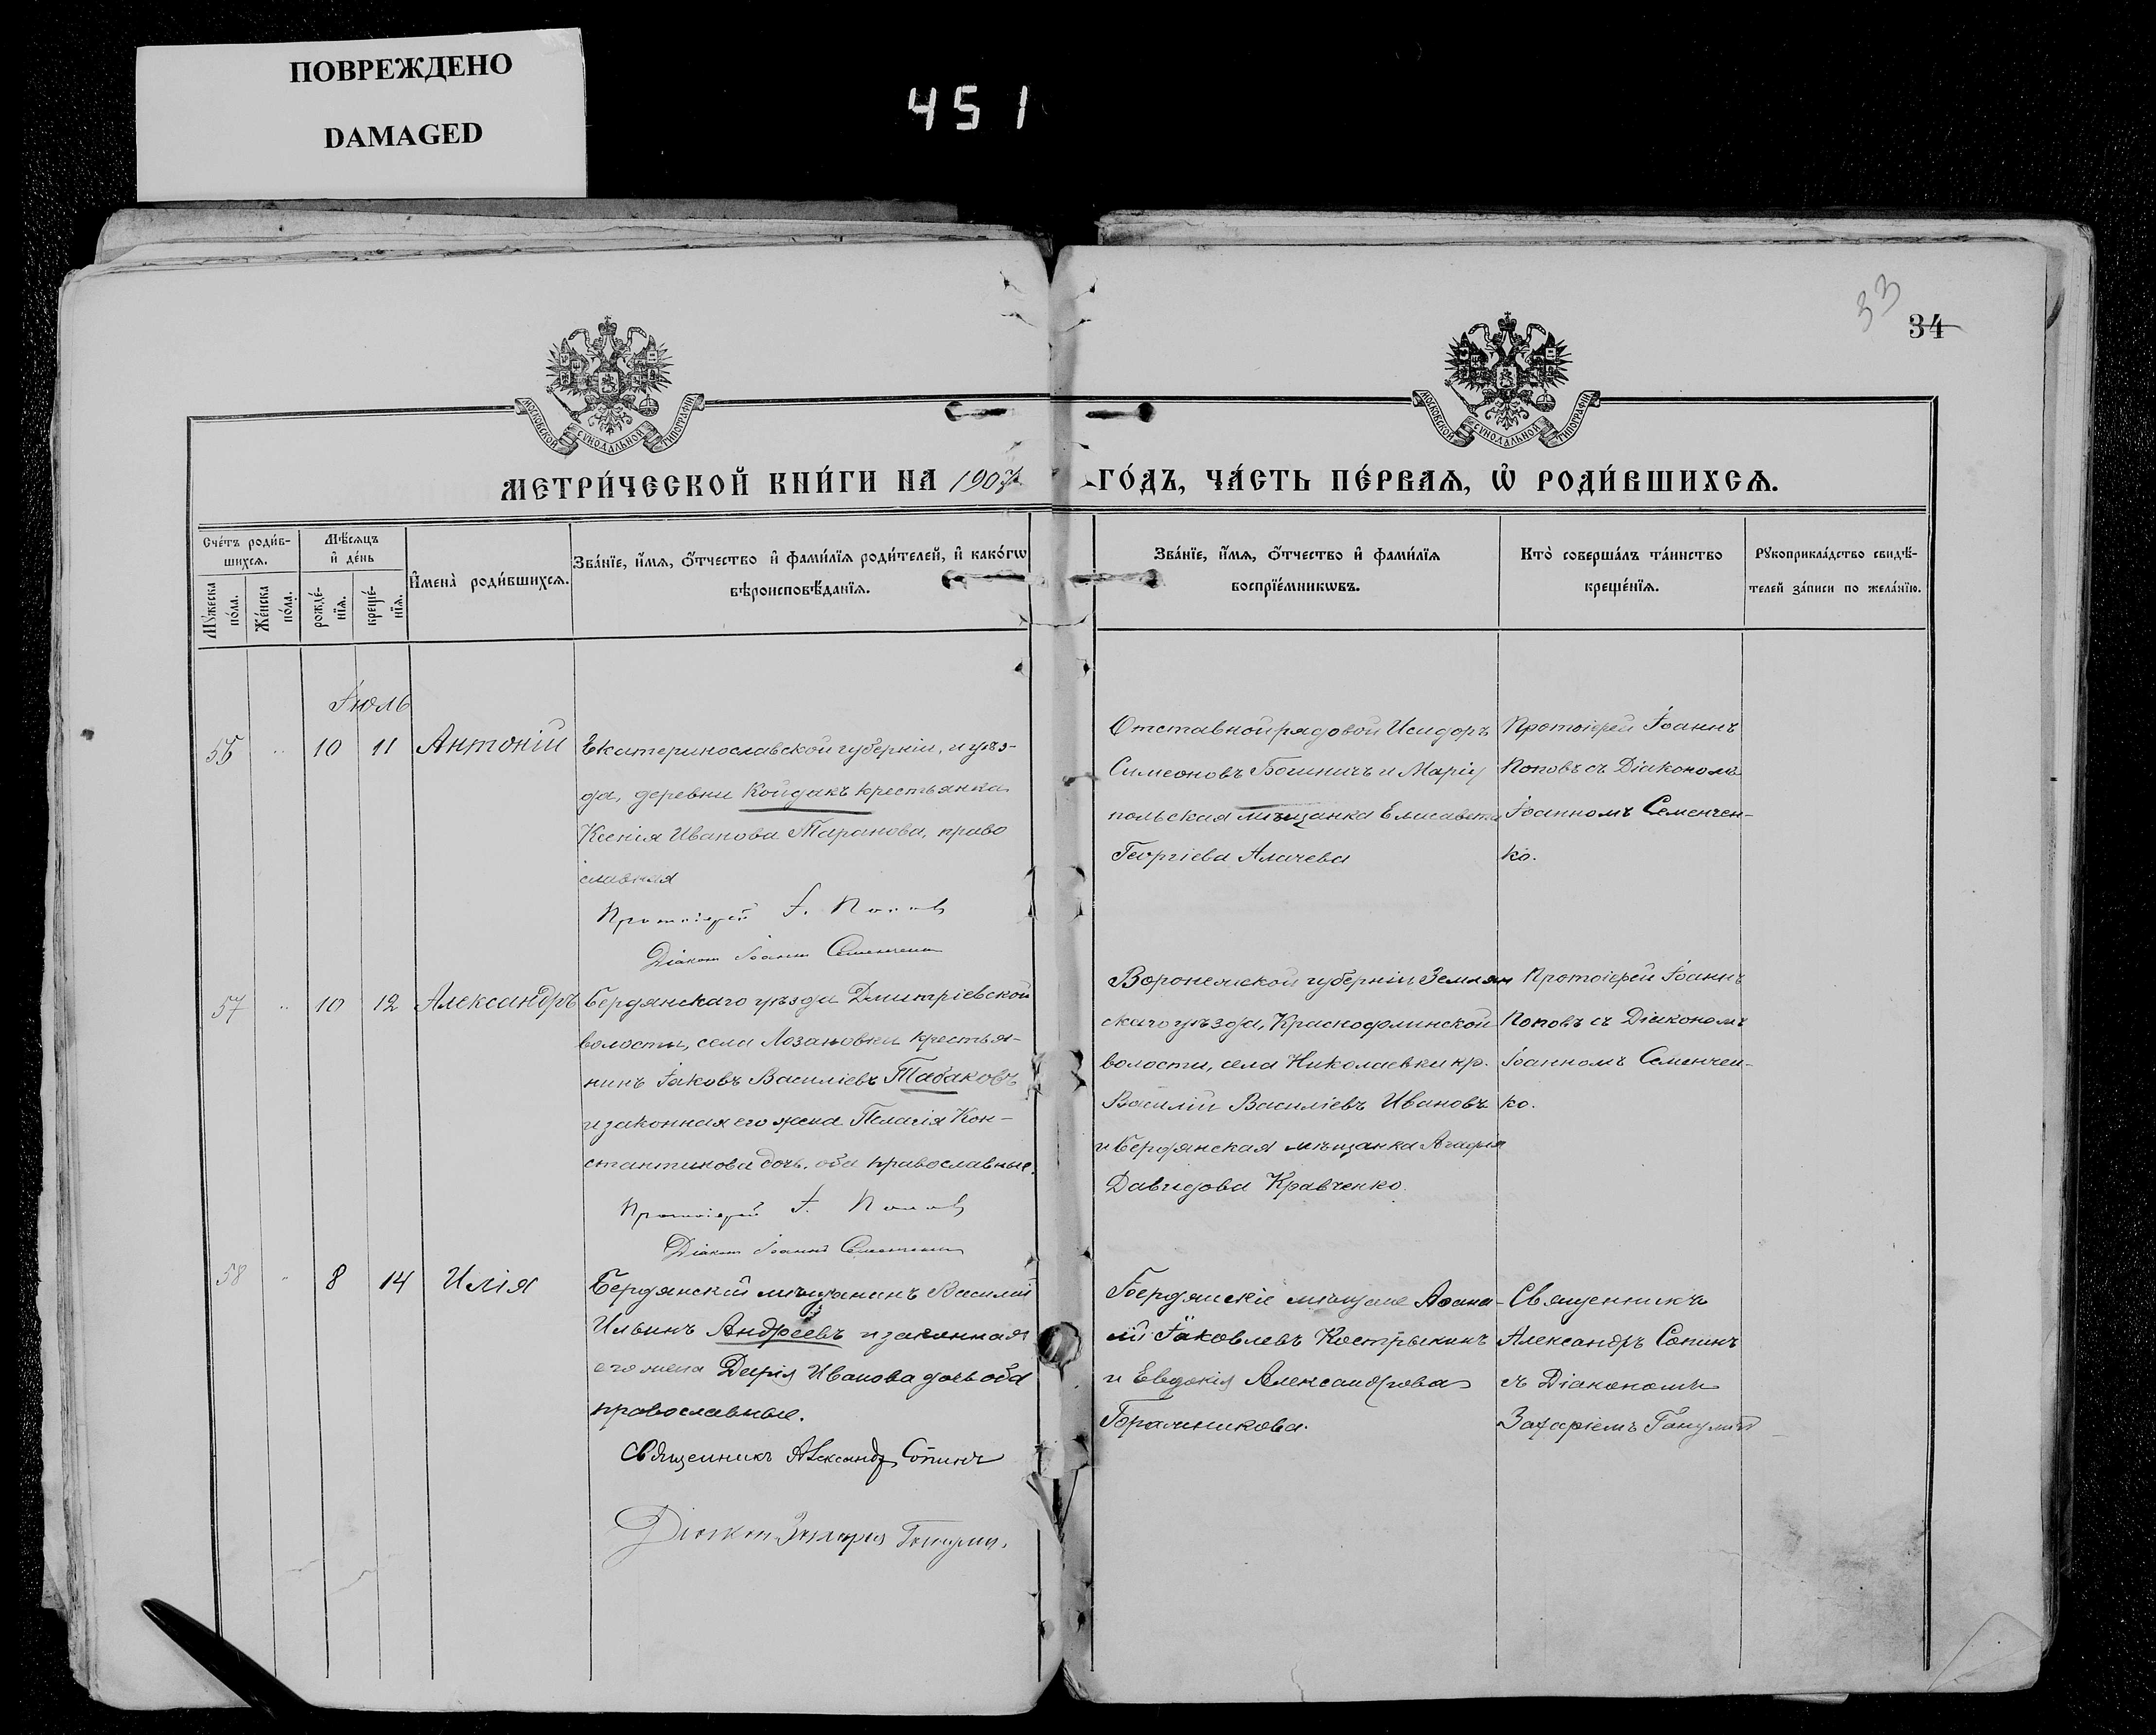 ПОВРЕЖДЕНО
DAMAGED
451
33
34
МОСКОВСКОЙ СѴНОДАЛЬНОЙ ТИПОГРАФІИ
МОСКОВСКОЙ СѴНОДАЛЬНОЙ ТИПОГРАФІИ
МЕТРИ́ЧЕСКОЙ КНИ́ГИ НА 1907 ГО́ДЪ, ЧА́СТЬ ПЕ́РВАѦ, Ѡ҆ РОДИ́ВШИХСѦ.
Сче́тъ роди́в-
шихсѧ.
Мꙋ́жеска
по́ла.
Же́нска
по́ла.
Мѣ́сѧцъ
и҆ де́нь
рожде́-
нїѧ.
креще́-
нїѧ.
И҆мена̀ роди́вшихсѧ.
Зва́нїе, и҆́мѧ, ѻ҆́тчество и҆ фами́лїѧ роди́телей, и҆ како́гѡ
вѣроисповѣ́данїѧ.
Зва́нїе, и҆́мѧ, ѻ҆́тчество и҆ фами́лїѧ
воспрїе́мникѡвъ.
Кто̀ соверша́лъ та́инство
креще́нїѧ.
Рꙋкоприкла́дство свидѣ́-
телей за́писи по жела́нїю.
Іюль
56 " 10 11 Антоній
Екатеринославской губерніи, и уѣз-
да, деревни Койдакъ крестьянка
Ксенія Иванова Таранова, право
славная
Протоіерей І. Поповъ
Діаконъ Іоаннъ Семенченко
Отставной рядовой Исидоръ
Симеоновъ и Маріу
польская мѣщанка Елисавета
Георгіева Алачева
Протоіерей Іоаннъ
Поповъ съ Діакономъ
Іоанномъ Семенчен-
ко.
57 " 10 12 Александръ
Бердянскаго уѣзда Дмитріевской
волости, села Лозановки крестья-
нинъ Іаковъ Василіевъ Табаковъ
и законная его жена Пелагія Кон-
стантинова дочь, оба православные.
Протоіерей І. Поповъ
Діаконъ Іоаннъ Семенченко
Воронежской губерніи Землян
скаго уѣзда,
волости, села Николаевки кр.
Василій Василіевъ Ивановъ
и Бердянская мѣщанка Агафія
Давидова Кравченко.
Протоіерей Іоаннъ
Поповъ съ Діакономъ
Іоанномъ Семенчен-
ко.
58 " 8 14 Илія
Бердянскій мѣщанинъ Василій
Ильинъ Андреевъ и законная
его жена Дарія Иванова дочь оба
православные.
Священникъ Александръ Сопинъ
Діаконъ Захарія
Бердянскіе мѣщане Афана-
сій Іаковлевъ Кострыкинъ
и Евдокія Александрова
Священникъ
Александръ Сопинъ
съ Діакономъ
Захаріемъ